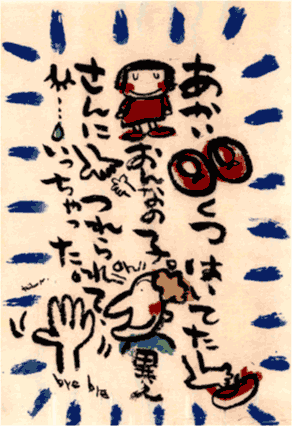 あかいくつはいてた
おんなの子。異人
さんにつれられて、
いっちゃった。
bye bye